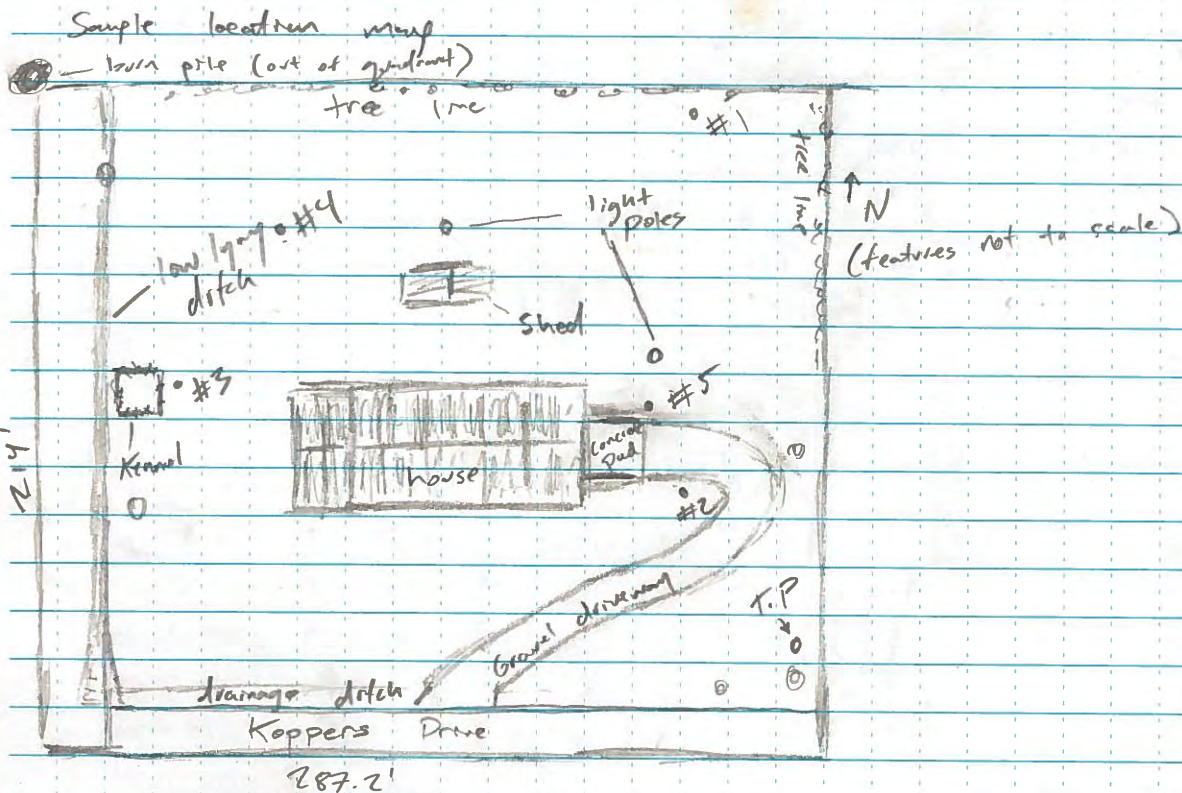 Sample location map
burn pile (out of quadrant)
tree line
#1
tree line
N
(features not to scale)
light
poles
#4
low lying
ditch
shed
#3
#5
Kennel
concrete
pad
house
#2
214'
Gravel driveway
T.P
drainage ditch
Koppers Drive
287.2'